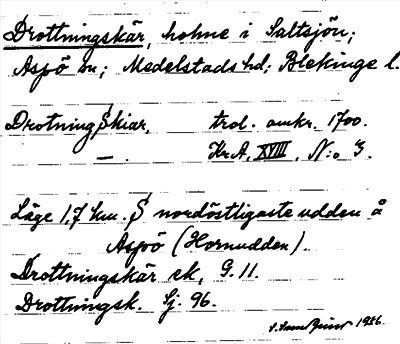 Drottningskär, holme i Saltsjön;
Aspö sn; Medelstads hd; Blekinge l.
Drotning Skiar. trol. omkr. 1700.
— . Kr.A. XVIII. N:o 3.
Läge 1,7 km. S nordöstligaste udden å
Aspö (Hornudden).
Drottningskär ek, G. 11.
Drottningsk. Sj. 96.
1926.